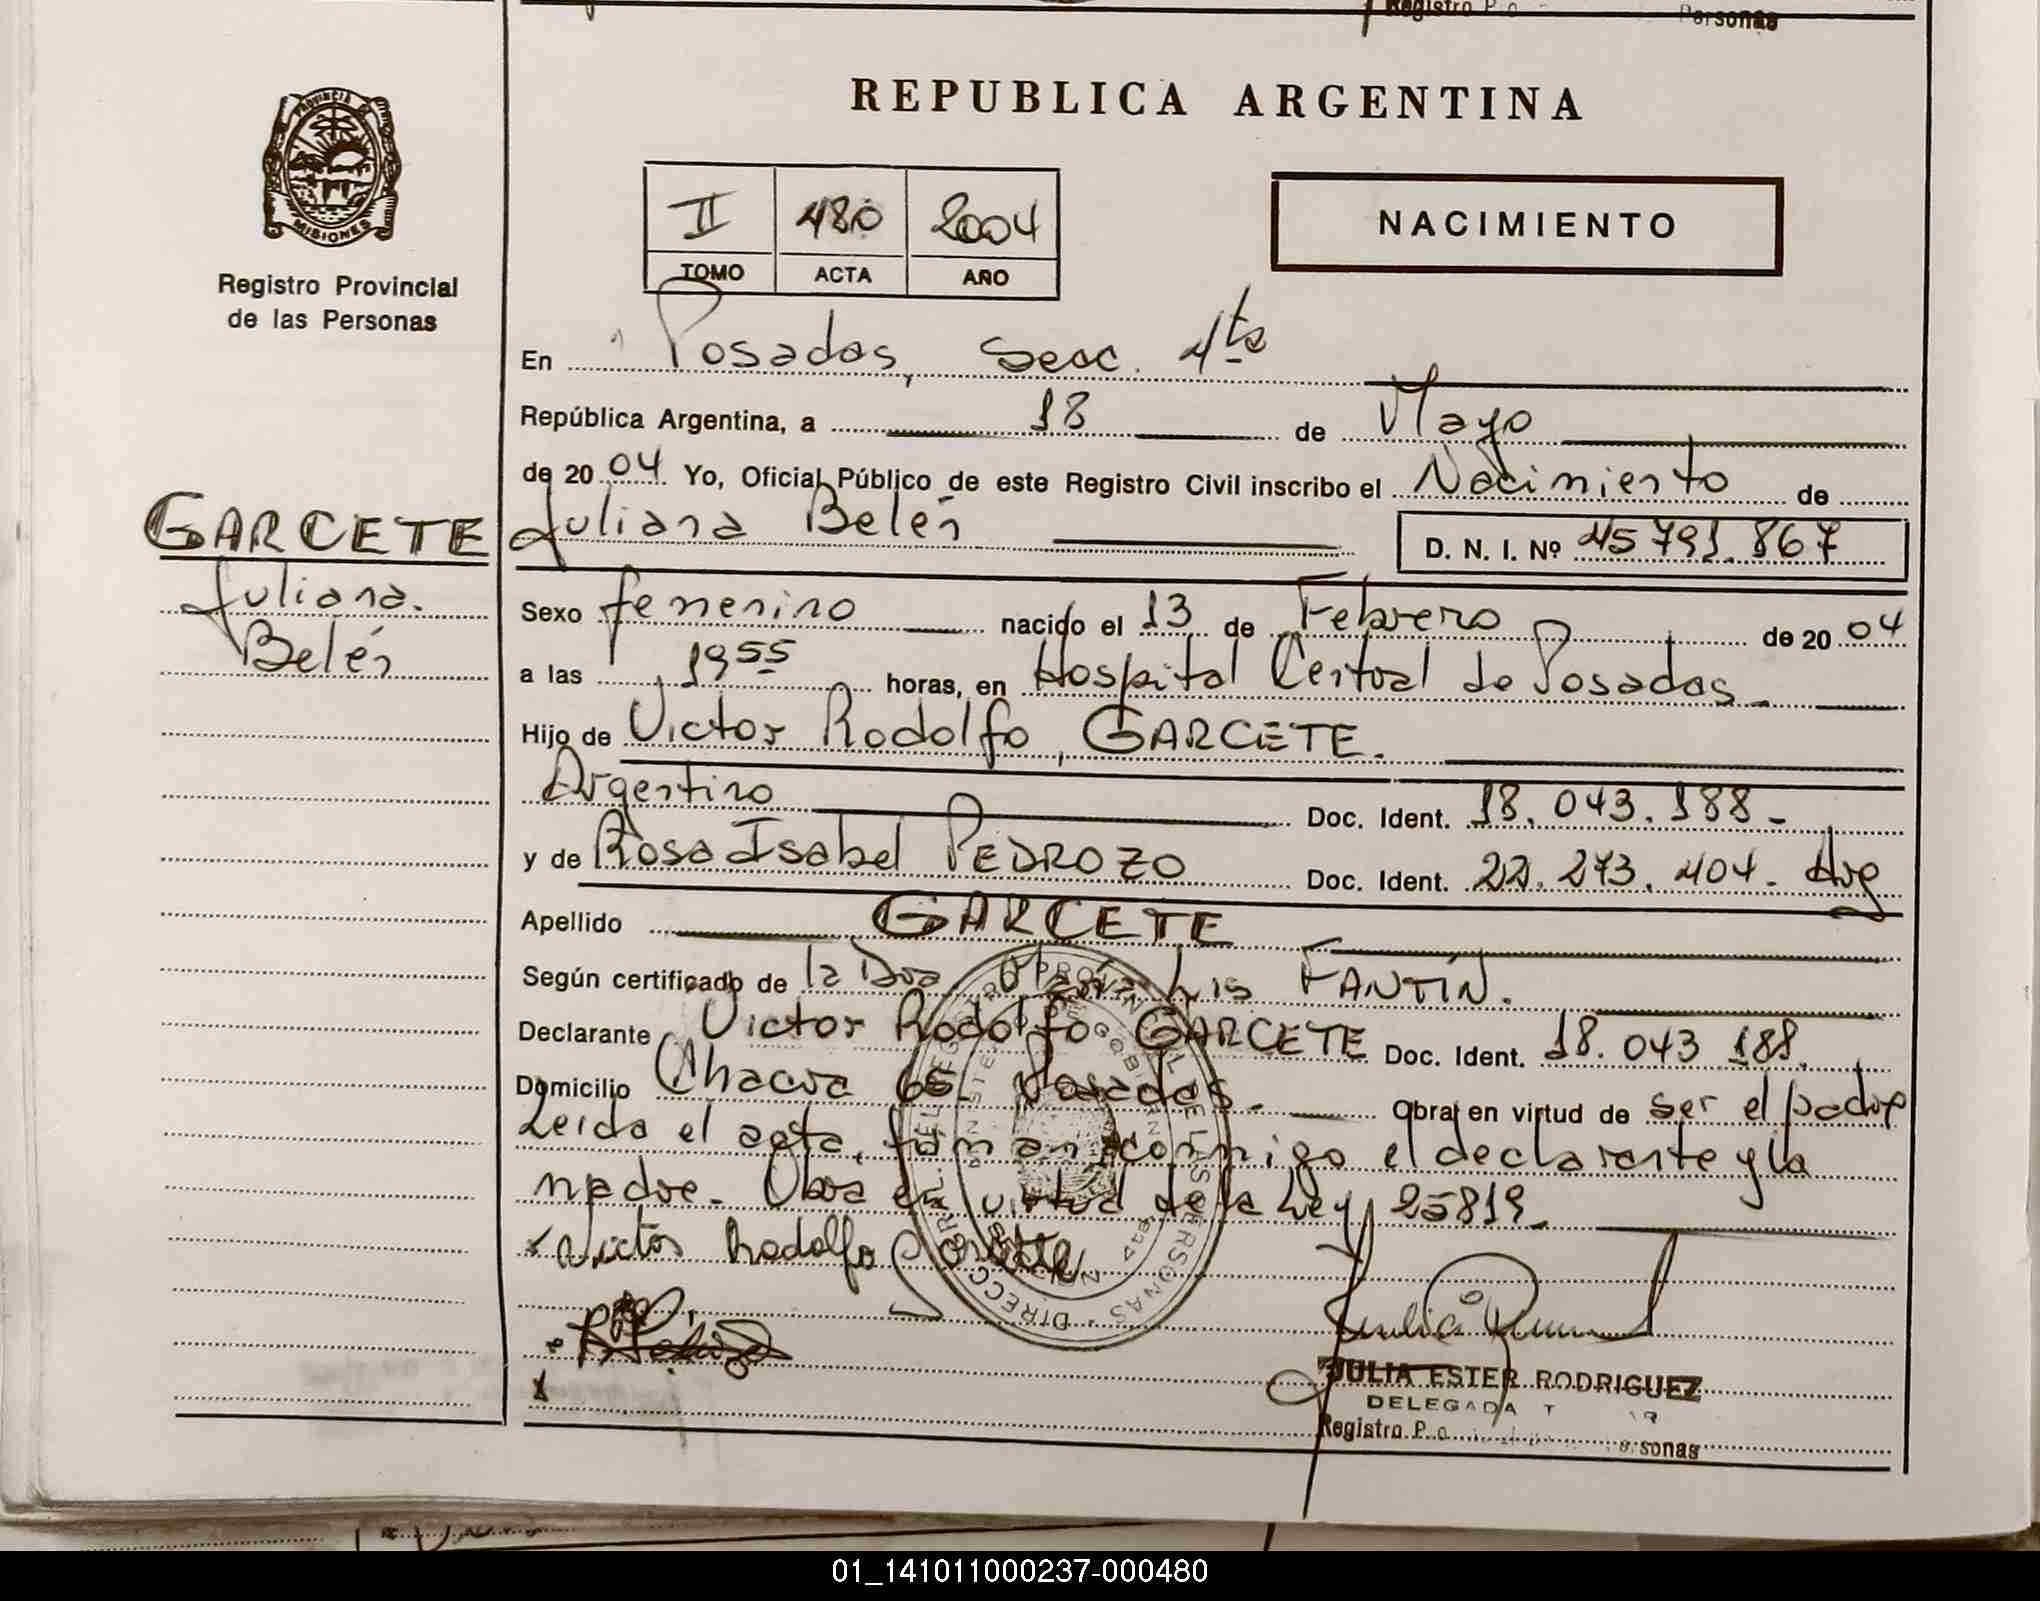 Registro P
Personas
PROVINCIA DE
MISIONES
Registro Provincial
de las Personas
REPUBLICA ARGENTINA
II 480 2004
TOMO ACTA AÑO
NACIMIENTO
En Posadas, Secc. 4ta
República Argentina, a 18 de Mayo
de 20 04 Yo, Oficial Público de este Registro Civil inscribo el Nacimiento de
GARCETE
Juliana
Belén
Juliana Belén D. N. I. Nº 45 791.867
Sexo femenino nacido el 13 de Febrero de 20 04
a las 1955 horas, en Hospital Central de Posadas
Hijo de Victor Rodolfo, GARCETE.
Argentino Doc. Ident. 18.043.188-
y de Rosa Isabel PEDROZO Doc. Ident. 22.273.404. Arg
Apellido GARCETE
Según certificado de la Dra María Lis FANTÍN.
Declarante Victor Rodolfo GARCETE Doc. Ident. 18.043 188
Domicilio Chacra 65 Posadas. Obra en virtud de ser el padre
Leida el acta, firman conmigo el declarante y la
madre. Obra en virtud de la Ley 25819.
Victor Rodolfo Garcete
JULIA ESTER RODRIGUEZ
DELEGADA
Registro P sonas
01_141011000237-000480